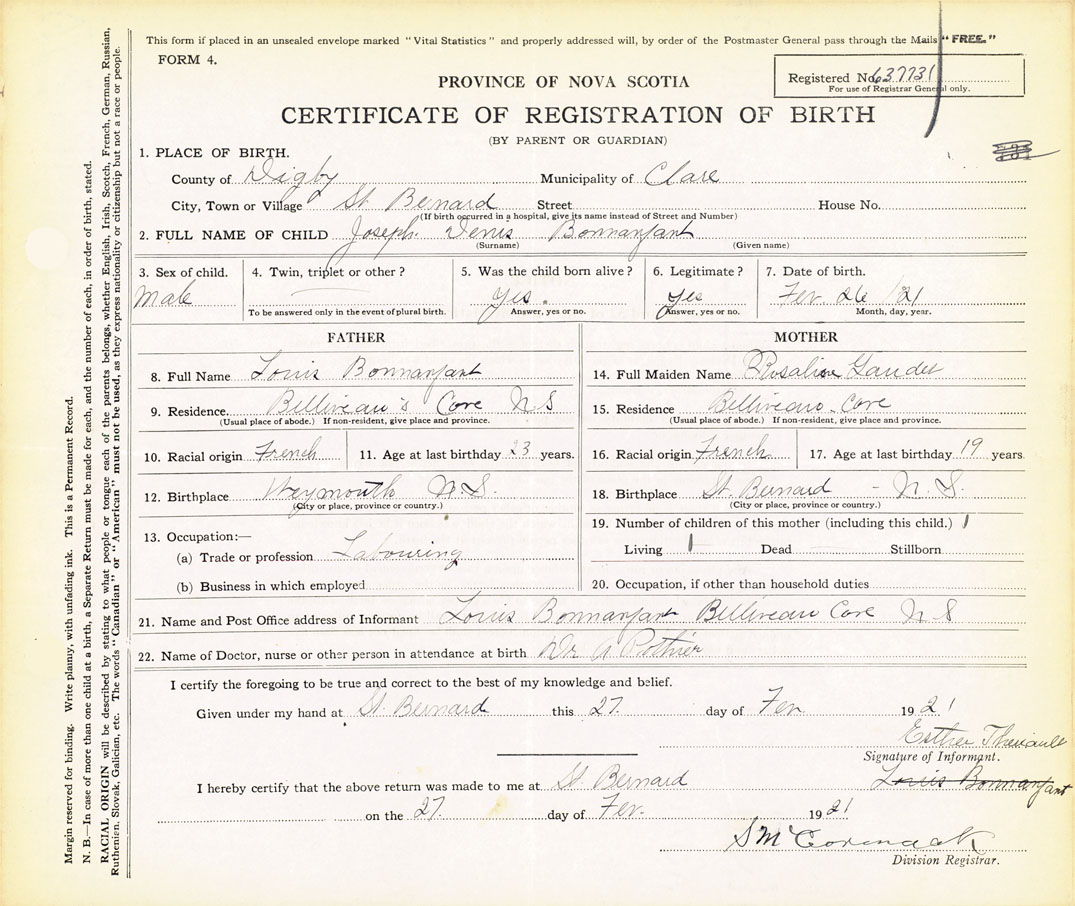 This form if placed in an unsealed envelope marked "Vital Statistics" and properly addressed will, by order of the Postmaster General pass through the Mails "FREE."
FORM 4.
Registered No. 637731
For use of Registrar General only.
PROVINCE OF NOVA SCOTIA
CERTIFICATE OF REGISTRATION OF BIRTH
(BY PARENT OR GUARDIAN)
1. PLACE OF BIRTH.
County of Digby Municipality of Clare
City, Town or Village St Bernard Street House No.
(If birth occurred in a hospital, give its name instead of Street and Number)
2. FULL NAME OF CHILD Joseph Denis Bonnanfant
(Surname) (Given name)
3. Sex of child. 4. Twin, triplet or other? 5. Was the child born alive? 6. Legitimate? 7. Date of birth.
Male Yes. Yes Fev. 26 /21
To be answered only in the event of plural birth. Answer, yes or no. Answer, yes or no. Month, day, year.
FATHER
8. Full Name Louis Bonnanfant
9. Residence. Belliveau's Cove N S
(Usual place of abode.) If non-resident, give place and province.
10. Racial origin French 11. Age at last birthday 23 years.
12. Birthplace Weymouth N.S.
(City or place, province or country.)
13. Occupation:—
(a) Trade or profession Labouring
(b) Business in which employed
MOTHER
14. Full Maiden Name Rosaline Gaudet
15. Residence Belliveau Cove
(Usual place of abode.) If non-resident, give place and province.
16. Racial origin French. 17. Age at last birthday 19 years.
18. Birthplace St. Bernard - N. S.
(City or place, province or country.)
19. Number of children of this mother (including this child.) 1
Living 1 Dead Stillborn
20. Occupation, if other than household duties
21. Name and Post Office address of Informant Louis Bonnanfant Belliveau Cove N S
22. Name of Doctor, nurse or other person in attendance at birth Dr A Pothier
I certify the foregoing to be true and correct to the best of my knowledge and belief.
Given under my hand at St. Bernard this 27. day of Fev. 1921
Esther Theriault
Signature of Informant.
Louis Bonnanfant
I hereby certify that the above return was made to me at St Bernard
on the 27. day of Fev. 1921
S McCormack
Division Registrar.
Margin reserved for binding. Write plainly, with unfading ink. This is a Permanent Record.
N. B.—In case of more than one child at a birth, a Separate Return must be made for each, and the number of each, in order of birth, stated.
RACIAL ORIGIN will be described by stating to what people or tongue each of the parents belongs, whether English, Irish, Scotch, French, German, Russian,
Ruthenian, Slovak, Galician, etc. The words "Canadian" or "American" must not be used, as they express nationality or citizenship but not a race or people.